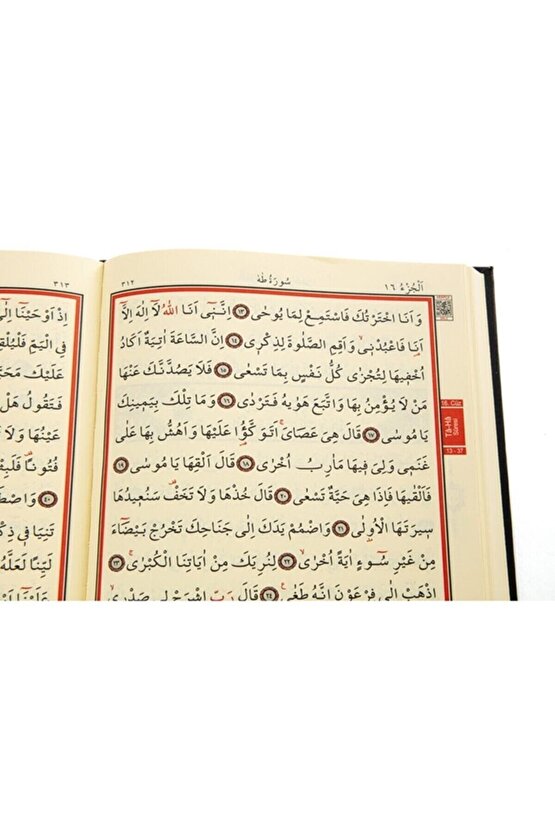 اَلْجُزْءُ ١٦
سُورَةُ طٰهٰ
٣١٢
وَاَنَا اخْتَرْتُكَ فَاسْتَمِعْ لِمَا يُوحٰى ﴿١٣﴾ اِنَّنٓى اَنَا اللّٰهُ لَٓا اِلٰهَ اِلَّٓا
اَنَا۬ فَاعْبُدْنٖىۙ وَاَقِمِ الصَّلٰوةَ لِذِكْرٖى ﴿١٤﴾ اِنَّ السَّاعَةَ اٰتِيَةٌ اَكَادُ
اُخْفٖيهَا لِتُجْزٰى كُلُّ نَفْسٍ بِمَا تَسْعٰى ﴿١٥﴾ فَلَا يَصُدَّنَّكَ عَنْهَا
مَنْ لَا يُؤْمِنُ بِهَا وَاتَّبَعَ هَوٰيهُ فَتَرْدٰى ﴿١٦﴾ وَمَا تِلْكَ بِيَمٖينِكَ
يَا مُوسٰى ﴿١٧﴾ قَالَ هِىَ عَصَاىَۚ اَتَوَكَّؤُ۬ا عَلَيْهَا وَاَهُشُّ بِهَا عَلٰى
غَنَمٖى وَلِىَ فٖيهَا مَاٰرِبُ اُخْرٰى ﴿١٨﴾ قَالَ اَلْقِهَا يَا مُوسٰى ﴿١٩﴾
فَاَلْقٰيهَا فَاِذَا هِىَ حَيَّةٌ تَسْعٰى ﴿٢٠﴾ قَالَ خُذْهَا وَلَا تَخَفْ۠ سَنُعٖيدُهَا
سٖيرَتَهَا الْاُو۫لٰى ﴿٢١﴾ وَاضْمُمْ يَدَكَ اِلٰى جَنَاحِكَ تَخْرُجْ بَيْضَٓاءَ
مِنْ غَيْرِ سُٓوءٍ اٰيَةً اُخْرٰىۙ ﴿٢٢﴾ لِنُرِيَكَ مِنْ اٰيَاتِنَا الْكُبْرٰىۚ ﴿٢٣﴾
اِذْهَبْ اِلٰى فِرْعَوْنَ اِنَّهُ طَغٰى۟ ﴿٢٤﴾ قَالَ رَبِّ اشْرَحْ لٖى صَدْرٖىۙ
16. Cüz
Tâ-Hâ
Sûresi
13 - 37
٣١٣
اِذْ اَوْحَيْنَٓا اِلٰٓى
فِى الْيَمِّ فَلْيُلْقِهِ
عَلَيْكَ مَحَبَّ
فَتَقُولُ هَلْ
عَيْنُهَا وَلَا
فُتُونًا۠ فَلَبِثْ
﴿٤٠﴾ وَاصْطَ
تَنِيَا فٖى ذِكْ
لَيِّنًا لَعَلَّهُ
عَلَيْنَٓا